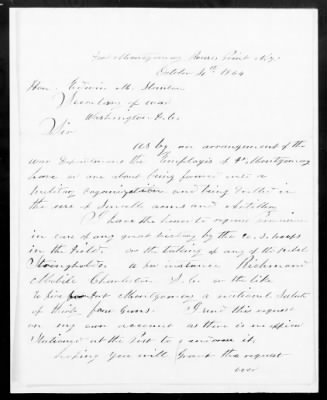 Fort Montgomery Rouses Point N.Y.
October 4th 1864
Hon. Edwin M. Stanton
Secretary of War
Washington D.C.
Sir
As by an arrangement of the
War Department the Employes of Ft. Montgomery
have or are about being formed into a
military organization and being drilled in
the use of small arms and Artillery
I have the honor to request permission
in case of any great victory by the U.S. troops
in the field. or the taking of any of the rebel
Strongholds as for instance Richmond
Mobile Charleston S.C. or the like
to fire from Fort Montgomery a national Salute
of thirty four Guns. I send this request
on my own account as there is no officer
Stationed at the Post to command it.
hoping you will Grant the request
over